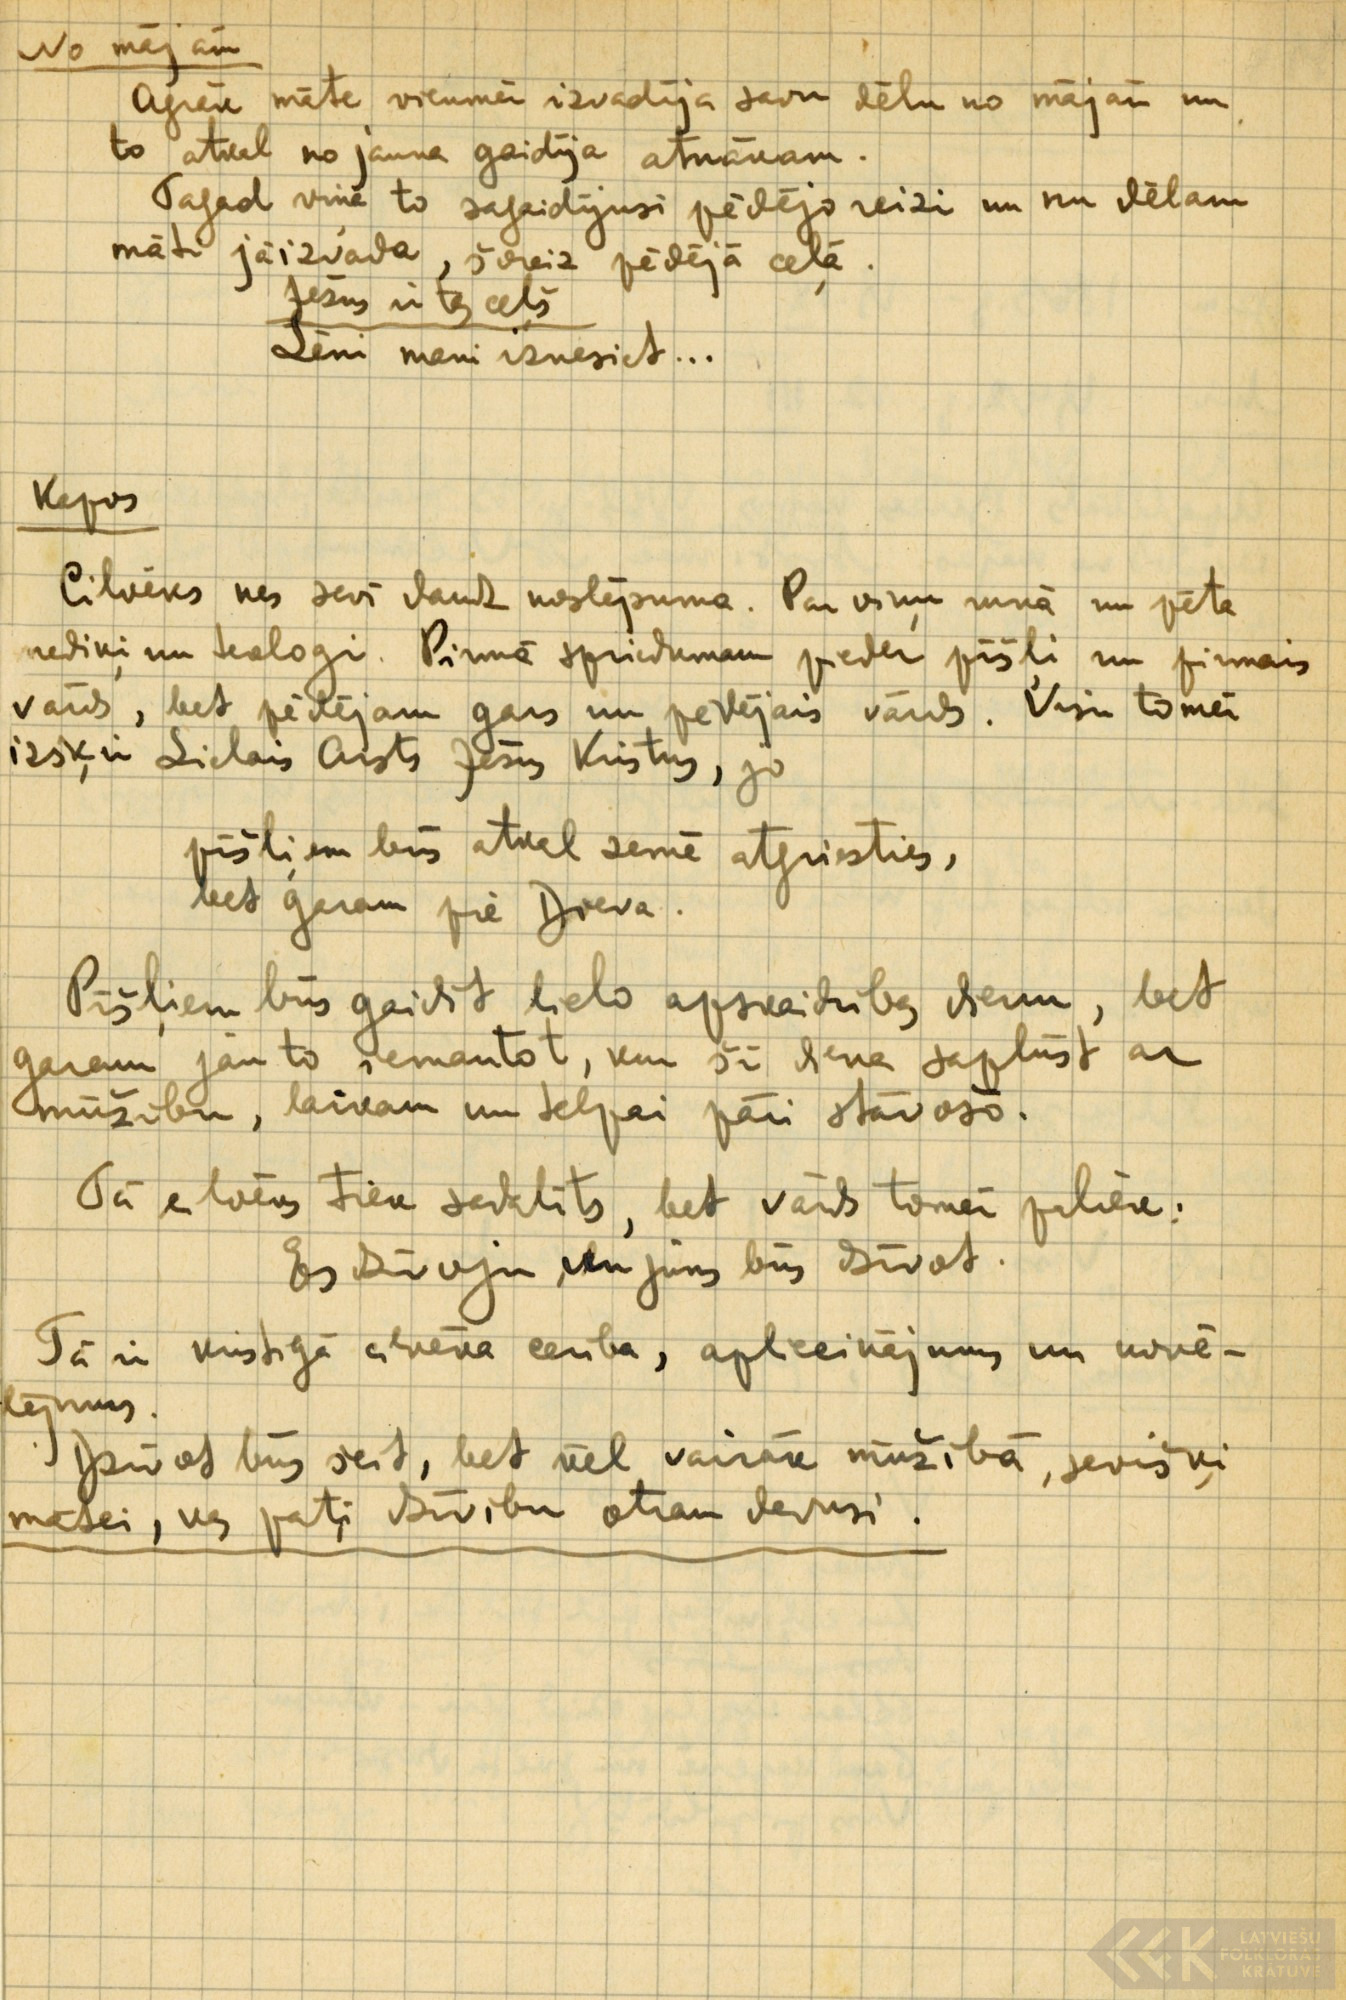 No mājām
Agrāk māte vienmēr izvadīja savu dēlu no mājām un
to atkal no jauna gaidīja atnākam.
Tagad viņa to sagaidījusi pēdējo reizi un nu dēlam
māti jāizvada, šoreiz pēdējā ceļā.
Jēzus ir tas ceļš
Lēni mani iznesiet...
Kapos
Cilvēks nes sevī daudz noslēpuma. Par viņu runā un pēta
mediķi un teologi. Pirmā spriedumam pieder pīšļi un pirmais
vārds, bet pēdējam gars un pēdējais vārds. Visu tomēr
izšķir Lielais Ārsts Jēzus Kristus, jo
pīšļiem būs atkal zemē atgriesties,
bet garam pie Dieva.
Pīšļiem būs gaidīt lielo apskaidrības dienu, bet
garam jau to iemantot, kur šī diena saplūst ar
mūžību, laikam un telpai pāri stāvošo.
Tā cilvēks tiek sadalīts, bet vārds tomēr paliek:
Es dzīvoju un jums būs dzīvot.
Tā ir kristīgā cilvēka cerība, apliecinājums un novē-
lējums.
Dzīvot būs šeit, bet vēl vairāk mūžībā, sevišķi
mātei, kas pati dzīvību otram devusi.
LATVIEŠU
FOLKLORAS
KRĀTUVE